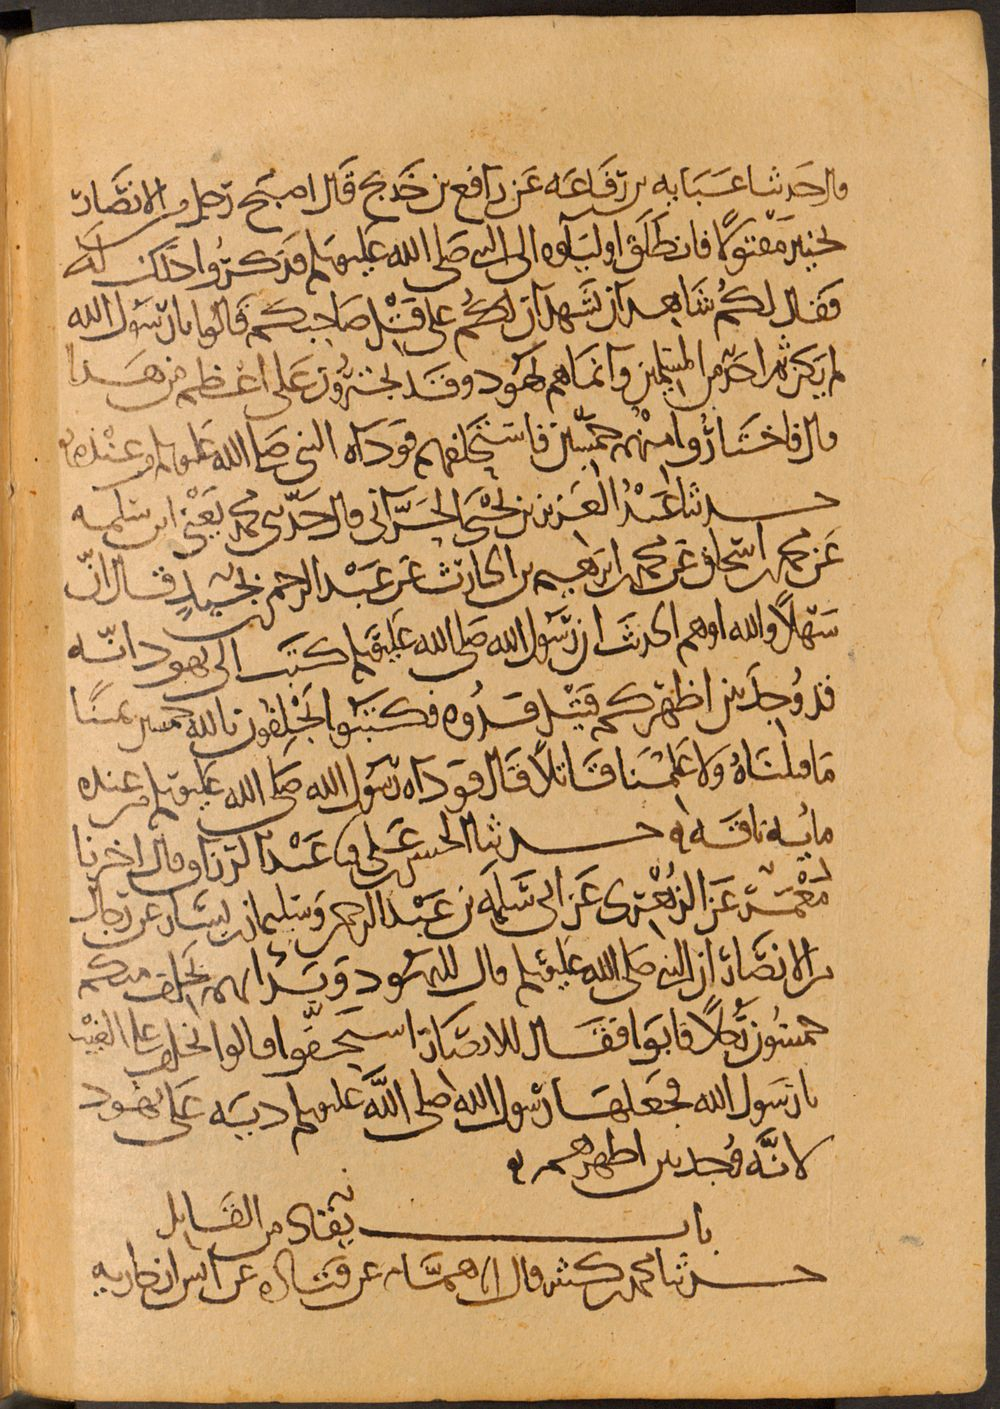 قال حدثنا عباية بن رفاعة عن رافع بن خديج قال اصبح رجل من الانصار
بخيبر مقتولًا فانطلق اولياوه الى النبي صلى الله عليه وسلم فذكروا ذلك له
فقال لكم شاهدان يشهدان لكم على قتل صاحبكم قالوا يا رسول الله
لم يكن ثم احد من المسلمين وانما هم يهود وقد يجترؤن على اعظم من هذا
قال فاختاروا منهم خمسين فاستحلفهم فوداه النبي صلى الله عليه وسلم من عنده
حدثنا عبد العزيز بن يحيى الحراني قال حدثني محمد يعني ابن سلمه
عن محمد بن اسحاق عن محمد بن ابراهيم بن الحارث عن عبد الرحمن بن بجيد قال ان
سهلًا والله اوهم الحديث ان رسول الله صلى الله عليه وسلم كتب الى يهود انه
قد وجد بين اظهركم قتيل فدوه فكتبوا يحلفون بالله خمسين يمينًا
ما قتلناه ولا علمنا قاتلًا قال فوداه رسول الله صلى الله عليه وسلم من عنده
مايه ناقه حدثنا الحسن بن علي نا عبد الرزاق قال اخبرنا
معمر عن الزهري عن ابي سلمه بن عبد الرحمن وسليمان بن يسار عن رجال
من الانصار ان النبي صلى الله عليه وسلم قال لليهود وبدا بهم يحلف منكم
خمسون رجلًا فابوا فقال للانصار استحقوا قالوا نحلف على الغيب
يا رسول الله فجعلها رسول الله صلى الله عليه وسلم دية على يهود
لانه وجد بين اظهرهم
باب يقاد من القاتل
حدثنا محمد بن كثير قال انا همام عن قتادة عن انس ان جارية